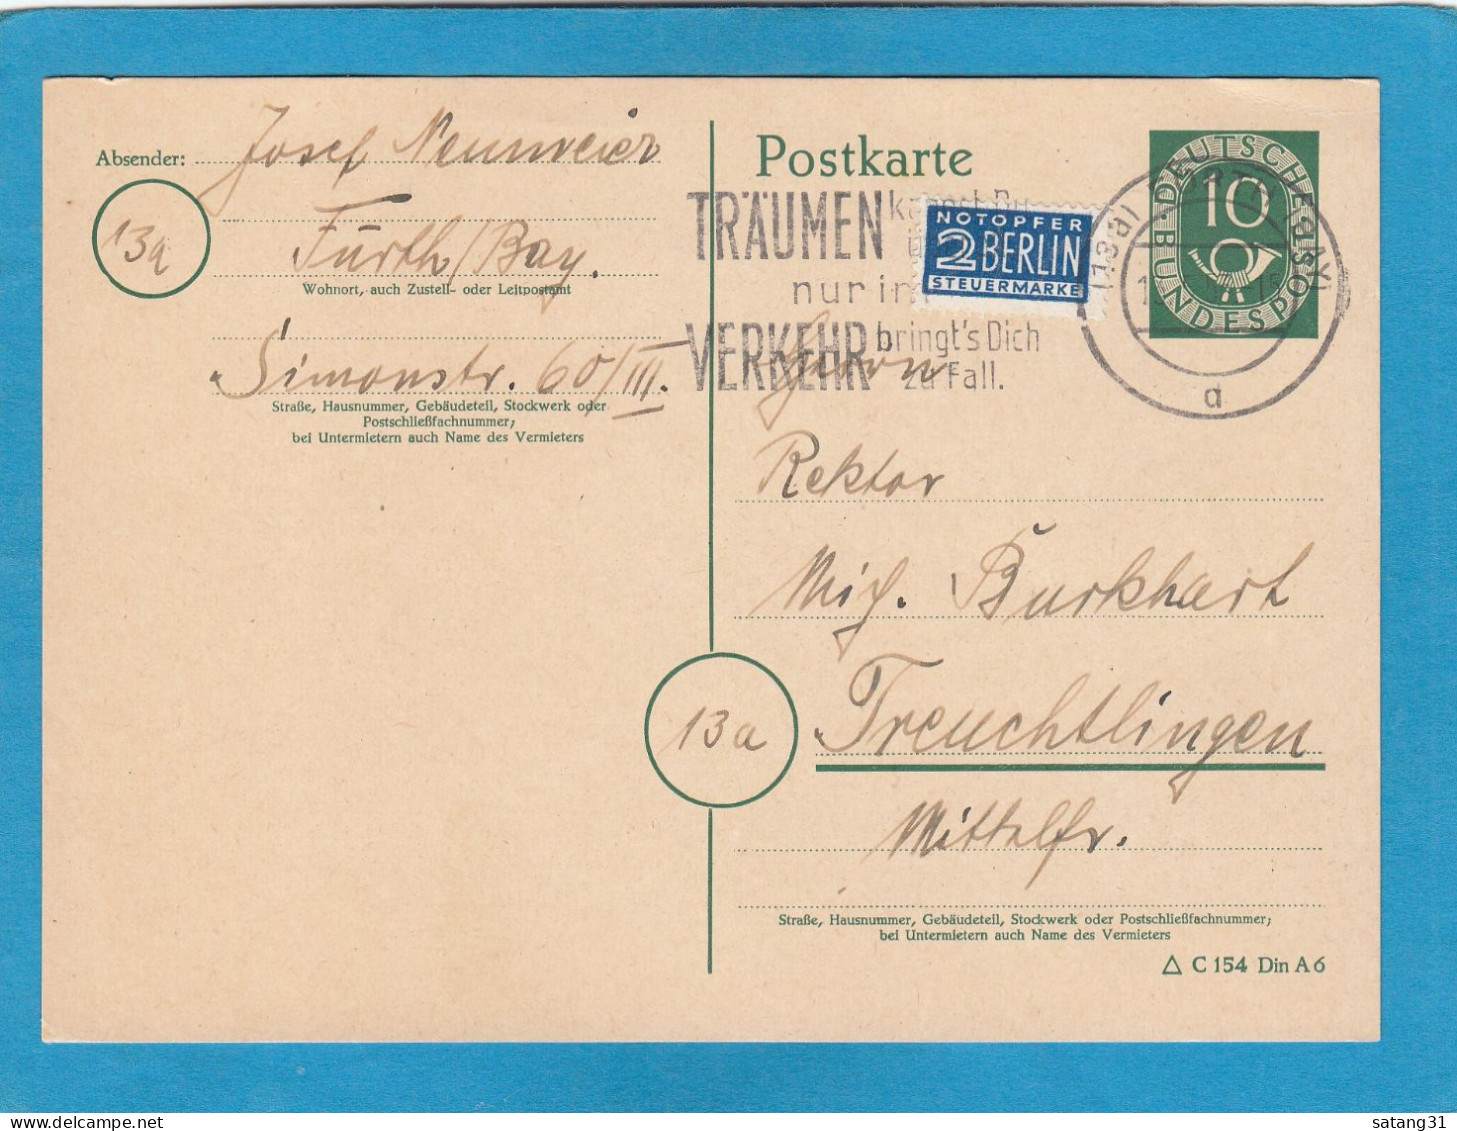 Absender: Josef Neumeier
13a
Fürth/Bay.
Wohnort, auch Zustell- oder Leitpostamt
Simonstr. 60/III.
Straße, Hausnummer, Gebäudeteil, Stockwerk oder
Postschließfachnummer;
bei Untermietern auch Name des Vermieters
Postkarte
TRÄUMEN
nur im
VERKEHR bringt's Dich
zu Fall.
NOTOPFER
2 BERLIN
STEUERMARKE
DEUTSCHE BUNDESPOST
10
(13a) FÜRTH (BAY)
a
Herrn
Rektor
Burkhart
13a
Treuchtlingen
Mittelfr.
Straße, Hausnummer, Gebäudeteil, Stockwerk oder Postschließfachnummer;
bei Untermietern auch Name des Vermieters
△ C 154 Din A 6
satang31